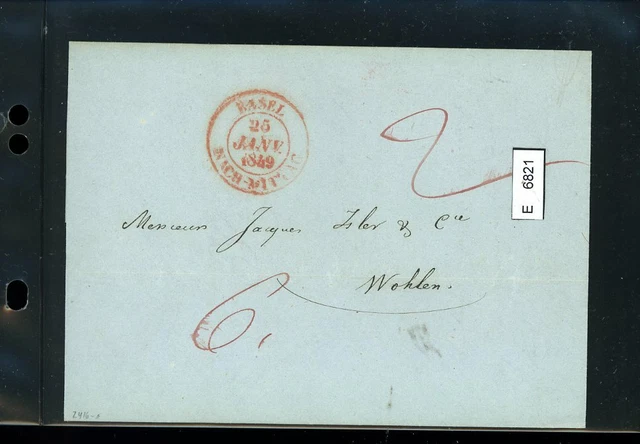 BASEL
25
JANV
1849
NACH-MITTAG
2
E 6821
Messieurs Jacques Isler & Cie
Wohlen.
6